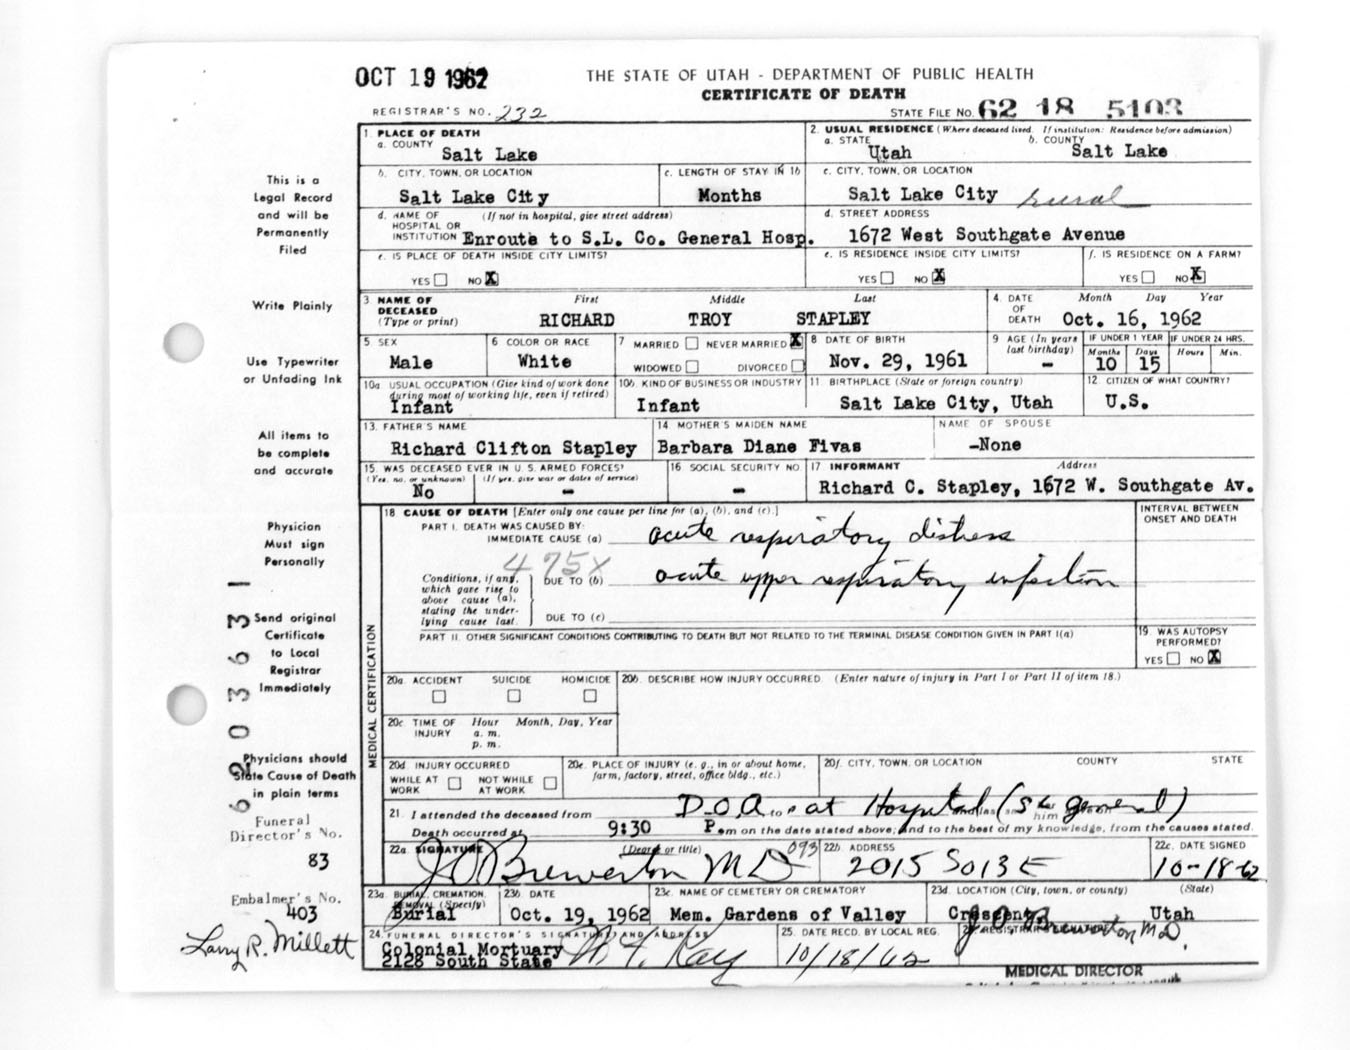 OCT 19 1962
THE STATE OF UTAH - DEPARTMENT OF PUBLIC HEALTH
CERTIFICATE OF DEATH
REGISTRAR'S NO. 232
STATE FILE NO. 62 18 5103
1. PLACE OF DEATH
a. COUNTY
Salt Lake
2. USUAL RESIDENCE (Where deceased lived. If institution: Residence before admission)
a. STATE
Utah
b. COUNTY
Salt Lake
b. CITY, TOWN, OR LOCATION
Salt Lake City
c. LENGTH OF STAY IN 1b
Months
c. CITY, TOWN, OR LOCATION
Salt Lake City rural
d. NAME OF HOSPITAL OR INSTITUTION (If not in hospital, give street address)
Enroute to S.L. Co. General Hosp.
d. STREET ADDRESS
1672 West Southgate Avenue
e. IS PLACE OF DEATH INSIDE CITY LIMITS?
YES NO X
e. IS RESIDENCE INSIDE CITY LIMITS?
YES NO X
f. IS RESIDENCE ON A FARM?
YES NO X
3. NAME OF DECEASED (Type or print)
First Middle Last
RICHARD TROY STAPLEY
4. DATE OF DEATH
Month Day Year
Oct. 16, 1962
5 SEX
Male
6 COLOR OR RACE
White
7 MARRIED NEVER MARRIED X
WIDOWED DIVORCED
8 DATE OF BIRTH
Nov. 29, 1961
9 AGE (In years last birthday)
-
IF UNDER 1 YEAR
Months Days
10 15
IF UNDER 24 HRS.
Hours Min.
10a USUAL OCCUPATION (Give kind of work done during most of working life, even if retired)
Infant
10b. KIND OF BUSINESS OR INDUSTRY
Infant
11 BIRTHPLACE (State or foreign country)
Salt Lake City, Utah
12. CITIZEN OF WHAT COUNTRY?
U.S.
13. FATHER'S NAME
Richard Clifton Stapley
14 MOTHER'S MAIDEN NAME
Barbara Diane Fivas
NAME OF SPOUSE
-None
15. WAS DECEASED EVER IN U.S. ARMED FORCES?
(Yes, no, or unknown) (If yes, give war or dates of service)
No -
16 SOCIAL SECURITY NO.
-
17 INFORMANT Address
Richard C. Stapley, 1672 W. Southgate Av.
MEDICAL CERTIFICATION
18 CAUSE OF DEATH [Enter only one cause per line for (a), (b), and (c).]
INTERVAL BETWEEN ONSET AND DEATH
PART I. DEATH WAS CAUSED BY:
IMMEDIATE CAUSE (a) acute respiratory distress
475X
Conditions, if any, which gave rise to above cause (a), stating the underlying cause last.
DUE TO (b) acute upper respiratory infection
DUE TO (c)
PART II. OTHER SIGNIFICANT CONDITIONS CONTRIBUTING TO DEATH BUT NOT RELATED TO THE TERMINAL DISEASE CONDITION GIVEN IN PART I(a)
19. WAS AUTOPSY PERFORMED?
YES NO X
20a. ACCIDENT SUICIDE HOMICIDE
20b. DESCRIBE HOW INJURY OCCURRED. (Enter nature of injury in Part I or Part II of item 18.)
20c TIME OF INJURY Hour Month, Day, Year
a. m.
p. m.
20d. INJURY OCCURRED
WHILE AT WORK NOT WHILE AT WORK
20e. PLACE OF INJURY (e. g., in or about home, farm, factory, street, office bldg., etc.)
20f. CITY, TOWN, OR LOCATION COUNTY STATE
21. I attended the deceased from D.O.A. to at Hospital (S L general) him
Death occurred at 9:30 P.m on the date stated above; and to the best of my knowledge, from the causes stated.
22a. SIGNATURE (Degree or title)
J O Brewerton MD 093
22b. ADDRESS
2015 So 13 E
22c. DATE SIGNED
10-18-62
23a. BURIAL, CREMATION, REMOVAL (Specify)
Burial
23b. DATE
Oct. 19, 1962
23c. NAME OF CEMETERY OR CREMATORY
Mem. Gardens of Valley
23d. LOCATION (City, town, or county) (State)
Crescent, Utah
24. FUNERAL DIRECTOR'S SIGNATURE AND ADDRESS
Colonial Mortuary
2128 South State
25. DATE RECD. BY LOCAL REG.
10/18/62
REGISTRAR'S SIGNATURE
J. O. Brewerton M.D.
MEDICAL DIRECTOR
This is a
Legal Record
and will be
Permanently
Filed
Write Plainly
Use Typewriter
or Unfading Ink
All items to
be complete
and accurate
Physician
Must sign
Personally
Send original
Certificate
to Local
Registrar
Immediately
Physicians should
State Cause of Death
in plain terms
Funeral
Director's No.
83
Embalmer's No.
403
Larry R. Millett